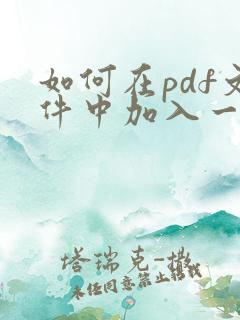 如何在pdf文
件中加入一
塔瑞克-撒
未经同意禁止转载